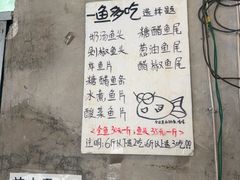 一鱼多吃 选择题
奶汤鱼头 糖醋鱼尾
剁椒鱼头 葱油鱼尾
炸鱼片 醋椒鱼尾
糖醋鱼条
水煮鱼片
酸菜鱼片
<全鱼30元一斤,鱼头35元一斤>
注明:6斤以下选2吃 6斤以上3吃